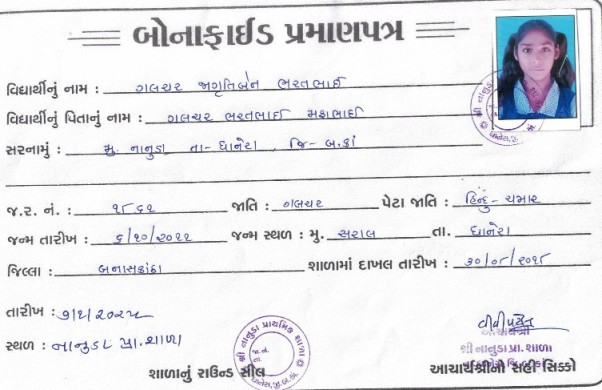 બોનાફાઈડ પ્રમાણપત્ર
વિદ્યાર્થીનું નામ : ગલચર જાગૃતિબેન ભરતભાઈ
વિદ્યાર્થીનું પિતાનું નામ : ગલચર ભરતભાઈ મફાભાઈ
સરનામું : મુ. નાનુડા તા- ધાનેરા , જિ- બ.કાં
જ.ર. નં. : ૧૮૬૧ જાતિ : ગલચર પેટા જાતિ : હિન્દુ - ચમાર
જન્મ તારીખ : ૬/૧૦/૨૦૧૧ જન્મ સ્થળ : મુ. સરાલ તા. ધાનેરા
જિલ્લા : બનાસકાંઠા શાળામાં દાખલ તારીખ : ૩૦/૦૮/૨૦૧૮
તારીખ :
સ્થળ : નાનુડા પ્રા. શાળા
શ્રી નાનુડા પ્રાથમિક શાળા
આચાર્યશ્રી
શ્રી નાનુડા પ્રા. શાળા
શાળાનું રાઉન્ડ સીલ આચાર્યશ્રીની સહી સિક્કો